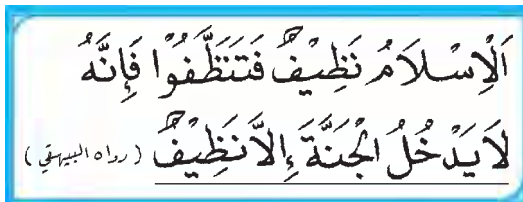 اَلْاِسْلَامُ نَظِيْفٌ فَتَنَظَّفُوْا فَاِنَّهُ
لَا يَدْخُلُ الْجَنَّةَ اِلَّا نَظِيْفٌ (رواه البيهقي)